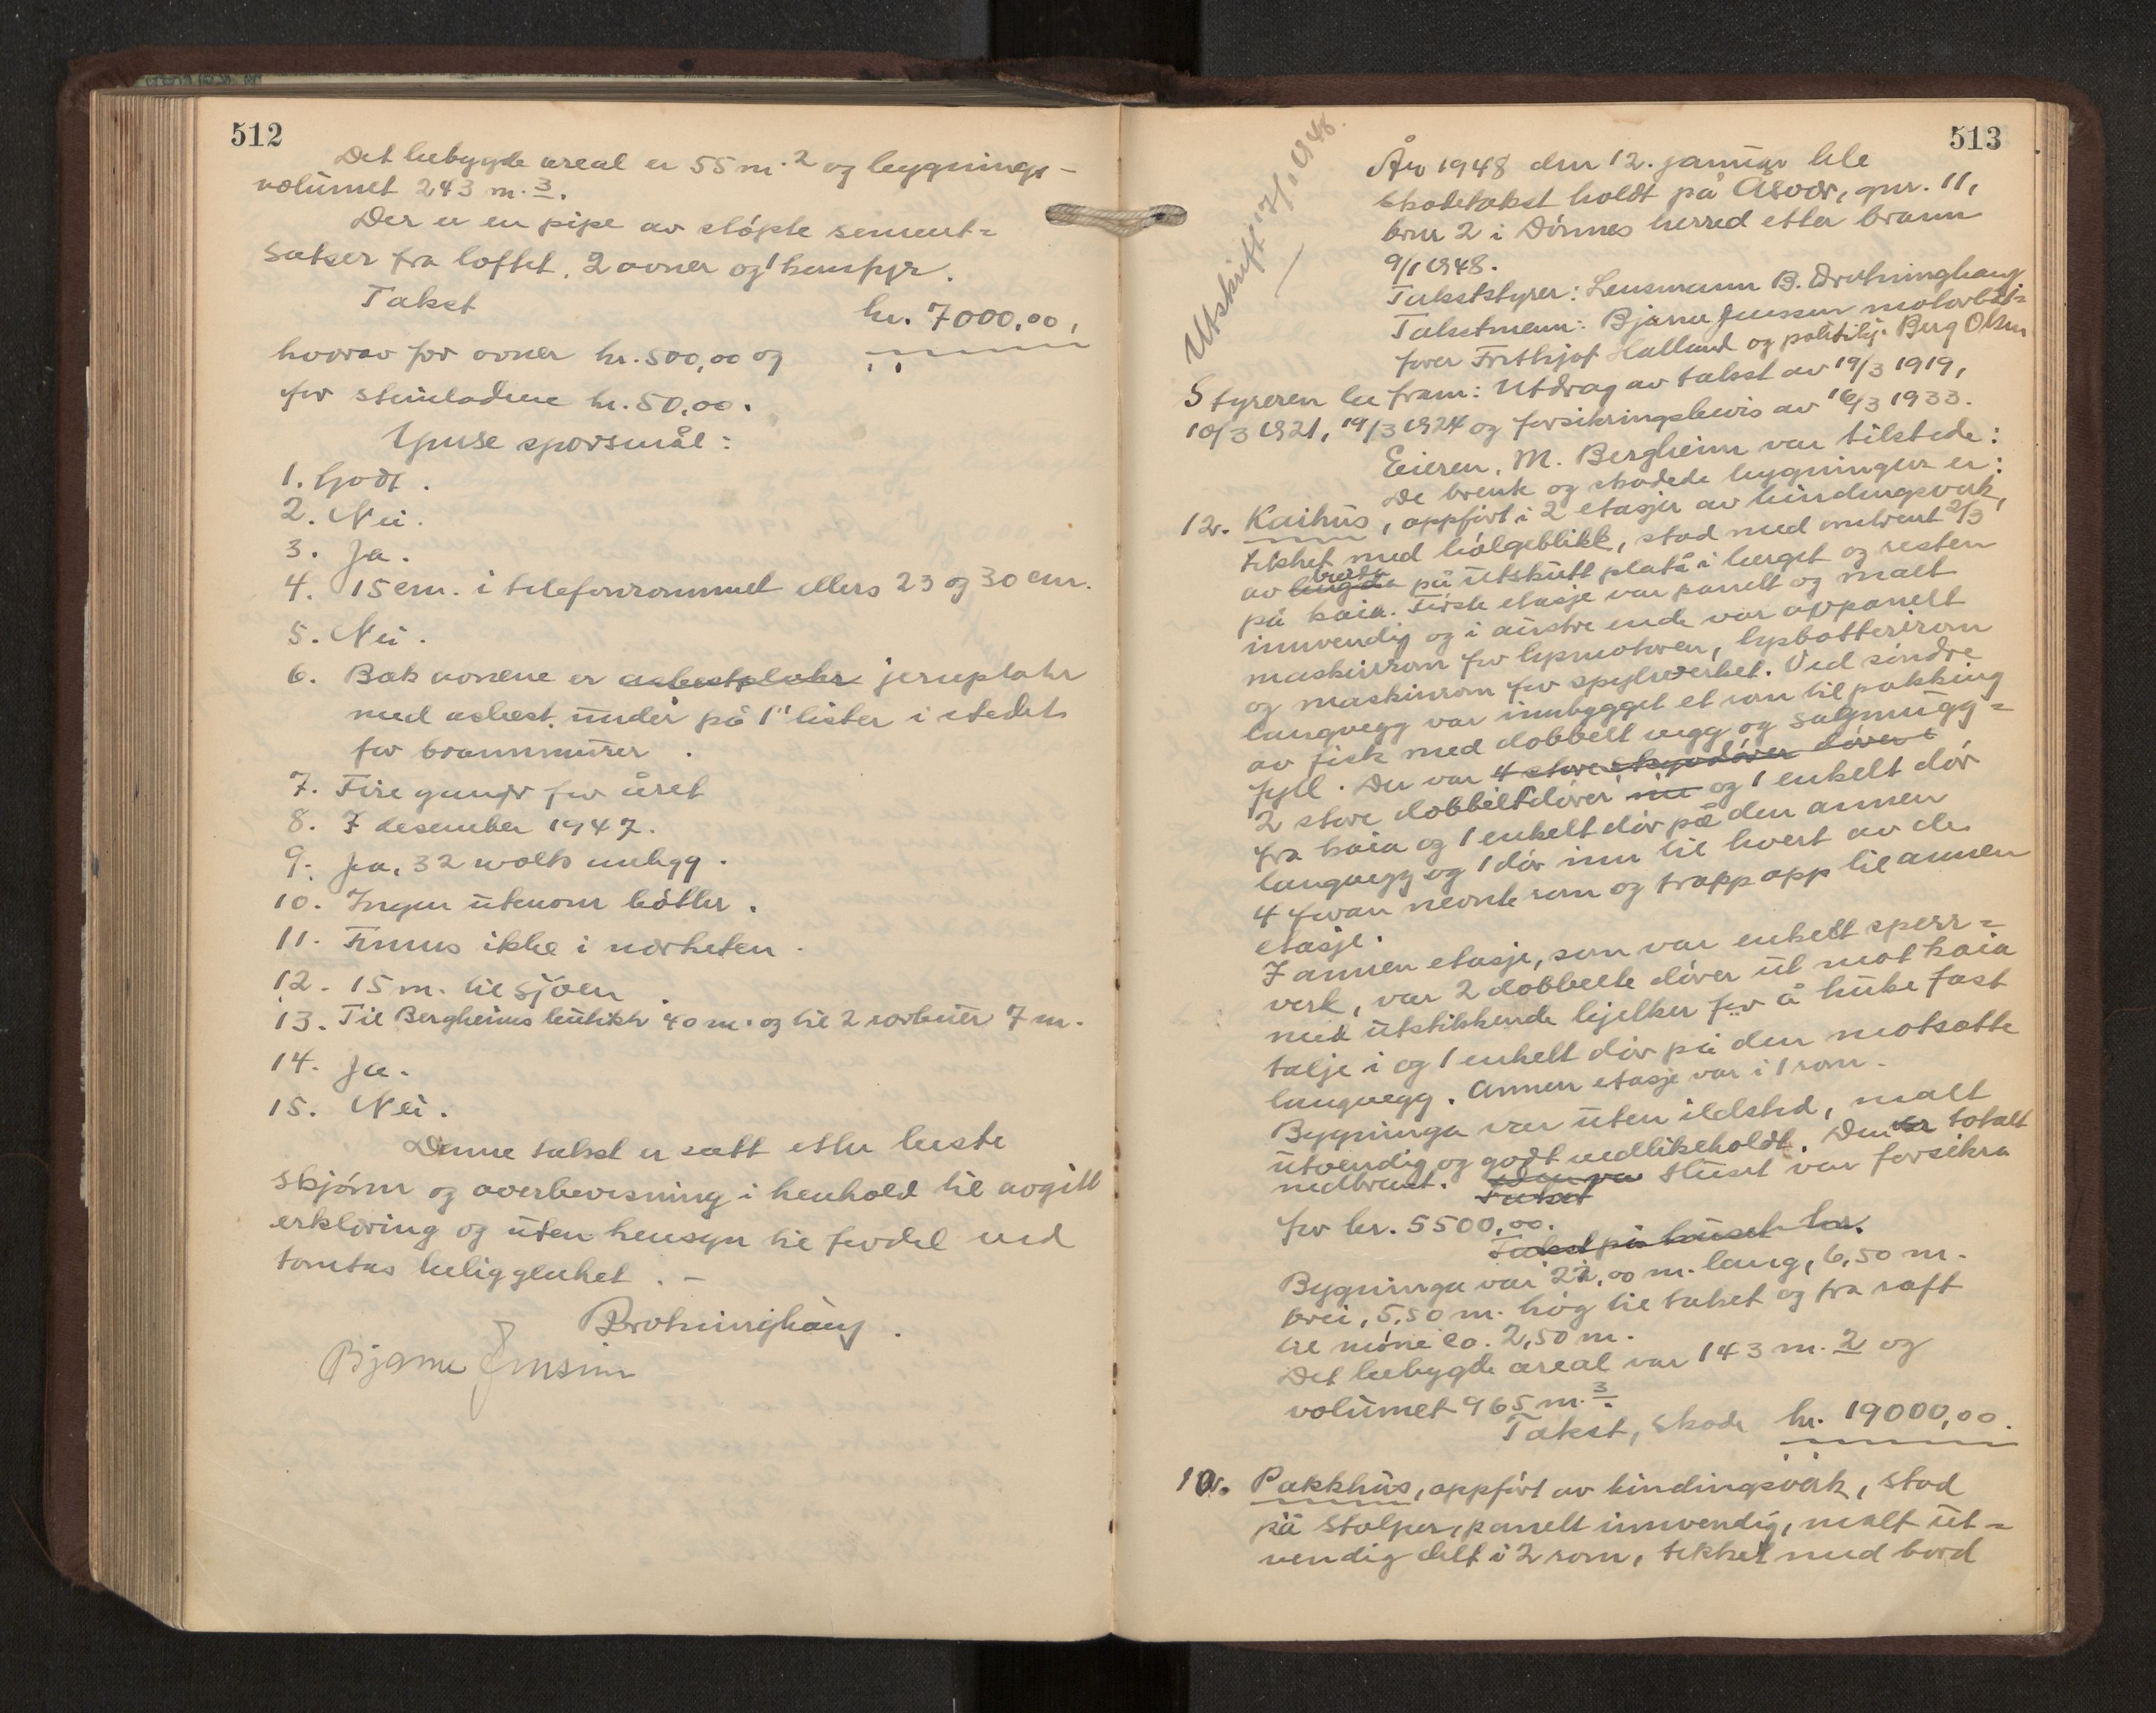 512
Det bebygde areal er 55 m.2 og bygnings-
volumet 243 m.3.
Der er en pipe av støpte sement=
satser fra loftet. 2 ovner og 1 komfyr.
Takst kr. 7000,00,
hvorav for ovner kr. 500,00 og
for steinladene kr. 50,00.
Ymse sporsmål:
1. Godt.
2. Nei.
3. Ja.
4. 15 cm. i telefonrommet ellers 23 og 30 cm.
5. Nei.
6. Bak ovnene er asbestplater jernplater
med asbest under på 1" lister i stedet
for brannmurer.
7. Fire ganger for året
8. 7 desember 1947.
9. Ja, 32 wolts anlegg.
10. Ingen utenom bøtter.
11. Finnes ikke i nærheten.
12. 15 m. til sjøen.
13. Til Bergheims butikk 40 m. og til 2 rorbuer 7 m.
14. Ja.
15. Nei.
Denne takst er satt etter beste
skjønn og overbevisning i henhold til avgitt
erklæring og uten hensyn til fordel ved
tomtas beliggenhet. -
Drotninghaug.
Bjarne Jensen
513
Utskrift 17/1 1948.
År 1948 den 12. januar ble
skadetakst holdt på Åsvær, gnr. 11,
bnr 2 i Dønnes herred etter brann
9/1 1948.
Takststyrer: Lensmann B. Drotninghaug
Takstmenn: Bjarne Jensen motorbåt=
fører Frithjof Halland og politibj. Berg Olsen
Styreren la fram: Utdrag av takst av 19/3 1919,
10/3 1921, 19/3 1924 og forsikringsbevis av 16/3 1933.
Eieren, M. Bergheim var tilstede:
De brente og skadede bygninger er:
12. Kaihus, oppført i 2 etasjer av bindingsverk,
tekket med bølgeblikk, stod med omtrent 2/3
av lengda bredda på utskutt platå i berget og resten
på kaia. Første etasje var panelt og malt
innvendig og i austre ende var oppanelt
maskinrom for lysmotoren, lysbatterirom
og maskinrom for spylverket. Ved søndre
langvegg var innbygget et rom til pakking
av fisk med dobbelt vegg og sagmugg=
fyll. Der var 4 store skyvdører dører
2 store dobbeltdører inn og 1 enkelt dør
fra kaia og 1 enkelt dør på den annen
langvegg og 1 dør inn til hvert av de
4 foran nevnte rom og trapp opp til annen
etasje.
I annen etasje, som var enkelt sperr=
verk, var 2 dobbelte dører ut mot kaia
med utstikkende bjelker for å huke fast
talje i og 1 enkelt dør på den motsatte
langvegg. Annen etasje var i 1 rom.
Bygninga var uten ildsted, malt
utvendig og godt vedlikeholdt. Den er totalt
nedbrent. Den var Huset var forsikra
Takst
for kr. 5500,00.
Takst på huset kr.
Bygninga var 22,00 m. lang, 6,50 m.
brei, 5,50 m. høg til taket og fra raft
til møne ca. 2,50 m.
Det bebygde areal var 143 m.2 og
volumet 965 m.3.
Takst, skade kr. 19000,00.
10. Pakkhus, oppført av bindingsverk, stod
på stolper, panelt innvendig, malt ut=
vendig delt i 2 rom, tekket med bord